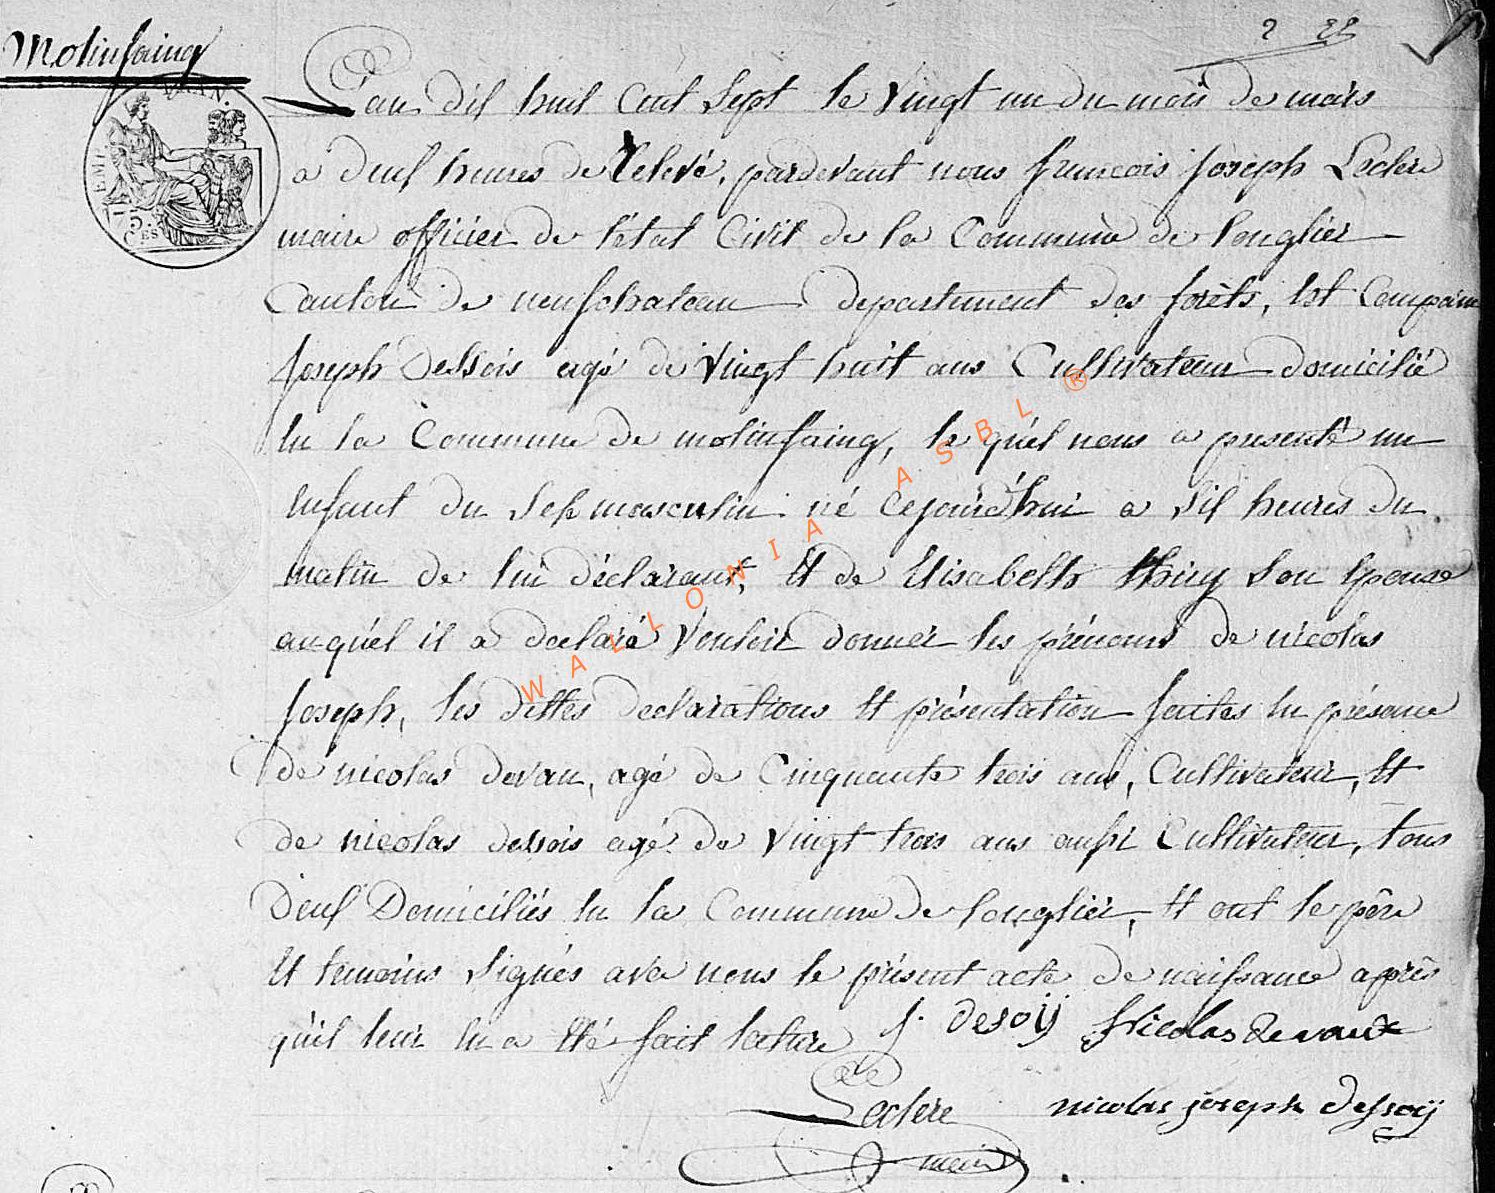 Molinfaing
L'an dix huit Cent Sept le vingt un du mois de mars
a deux heures de relevé, pardevant nous françois joseph Leclere
maire officier de l'état Civil de la Commune de longlier
Canton de neufchateau departement des forêts, Est Comparu
joseph Dessois agé de vingt huit ans Cultivateur domicilié
En la Commune de molinfaing, le quel nous a presenté un
Enfant du Sexe masculin né cejourd'hui a six heures du
matin de lui déclarant, Et de Elisabeth thiry Son Epouse
auquel il a declaré Vouloir donner les prénoms de nicolas
joseph, les dittes declarations Et présentation faites En présence
de nicolas devau, agé de Cinquante trois ans, Cultivateur, Et
de nicolas dessois agé de vingt trois ans aussi Cultivateur, tous
deux Domiciliés En la Commune de longlier, Et ont le père
Et temoins signés avec nous le présent acte de naissance après
qu'il leur En a Eté fait lecture j. desoij Nicolas devaux
Leclere nicolas joseph dessoij
maire
5
CES
WALLONIA ASBL ®